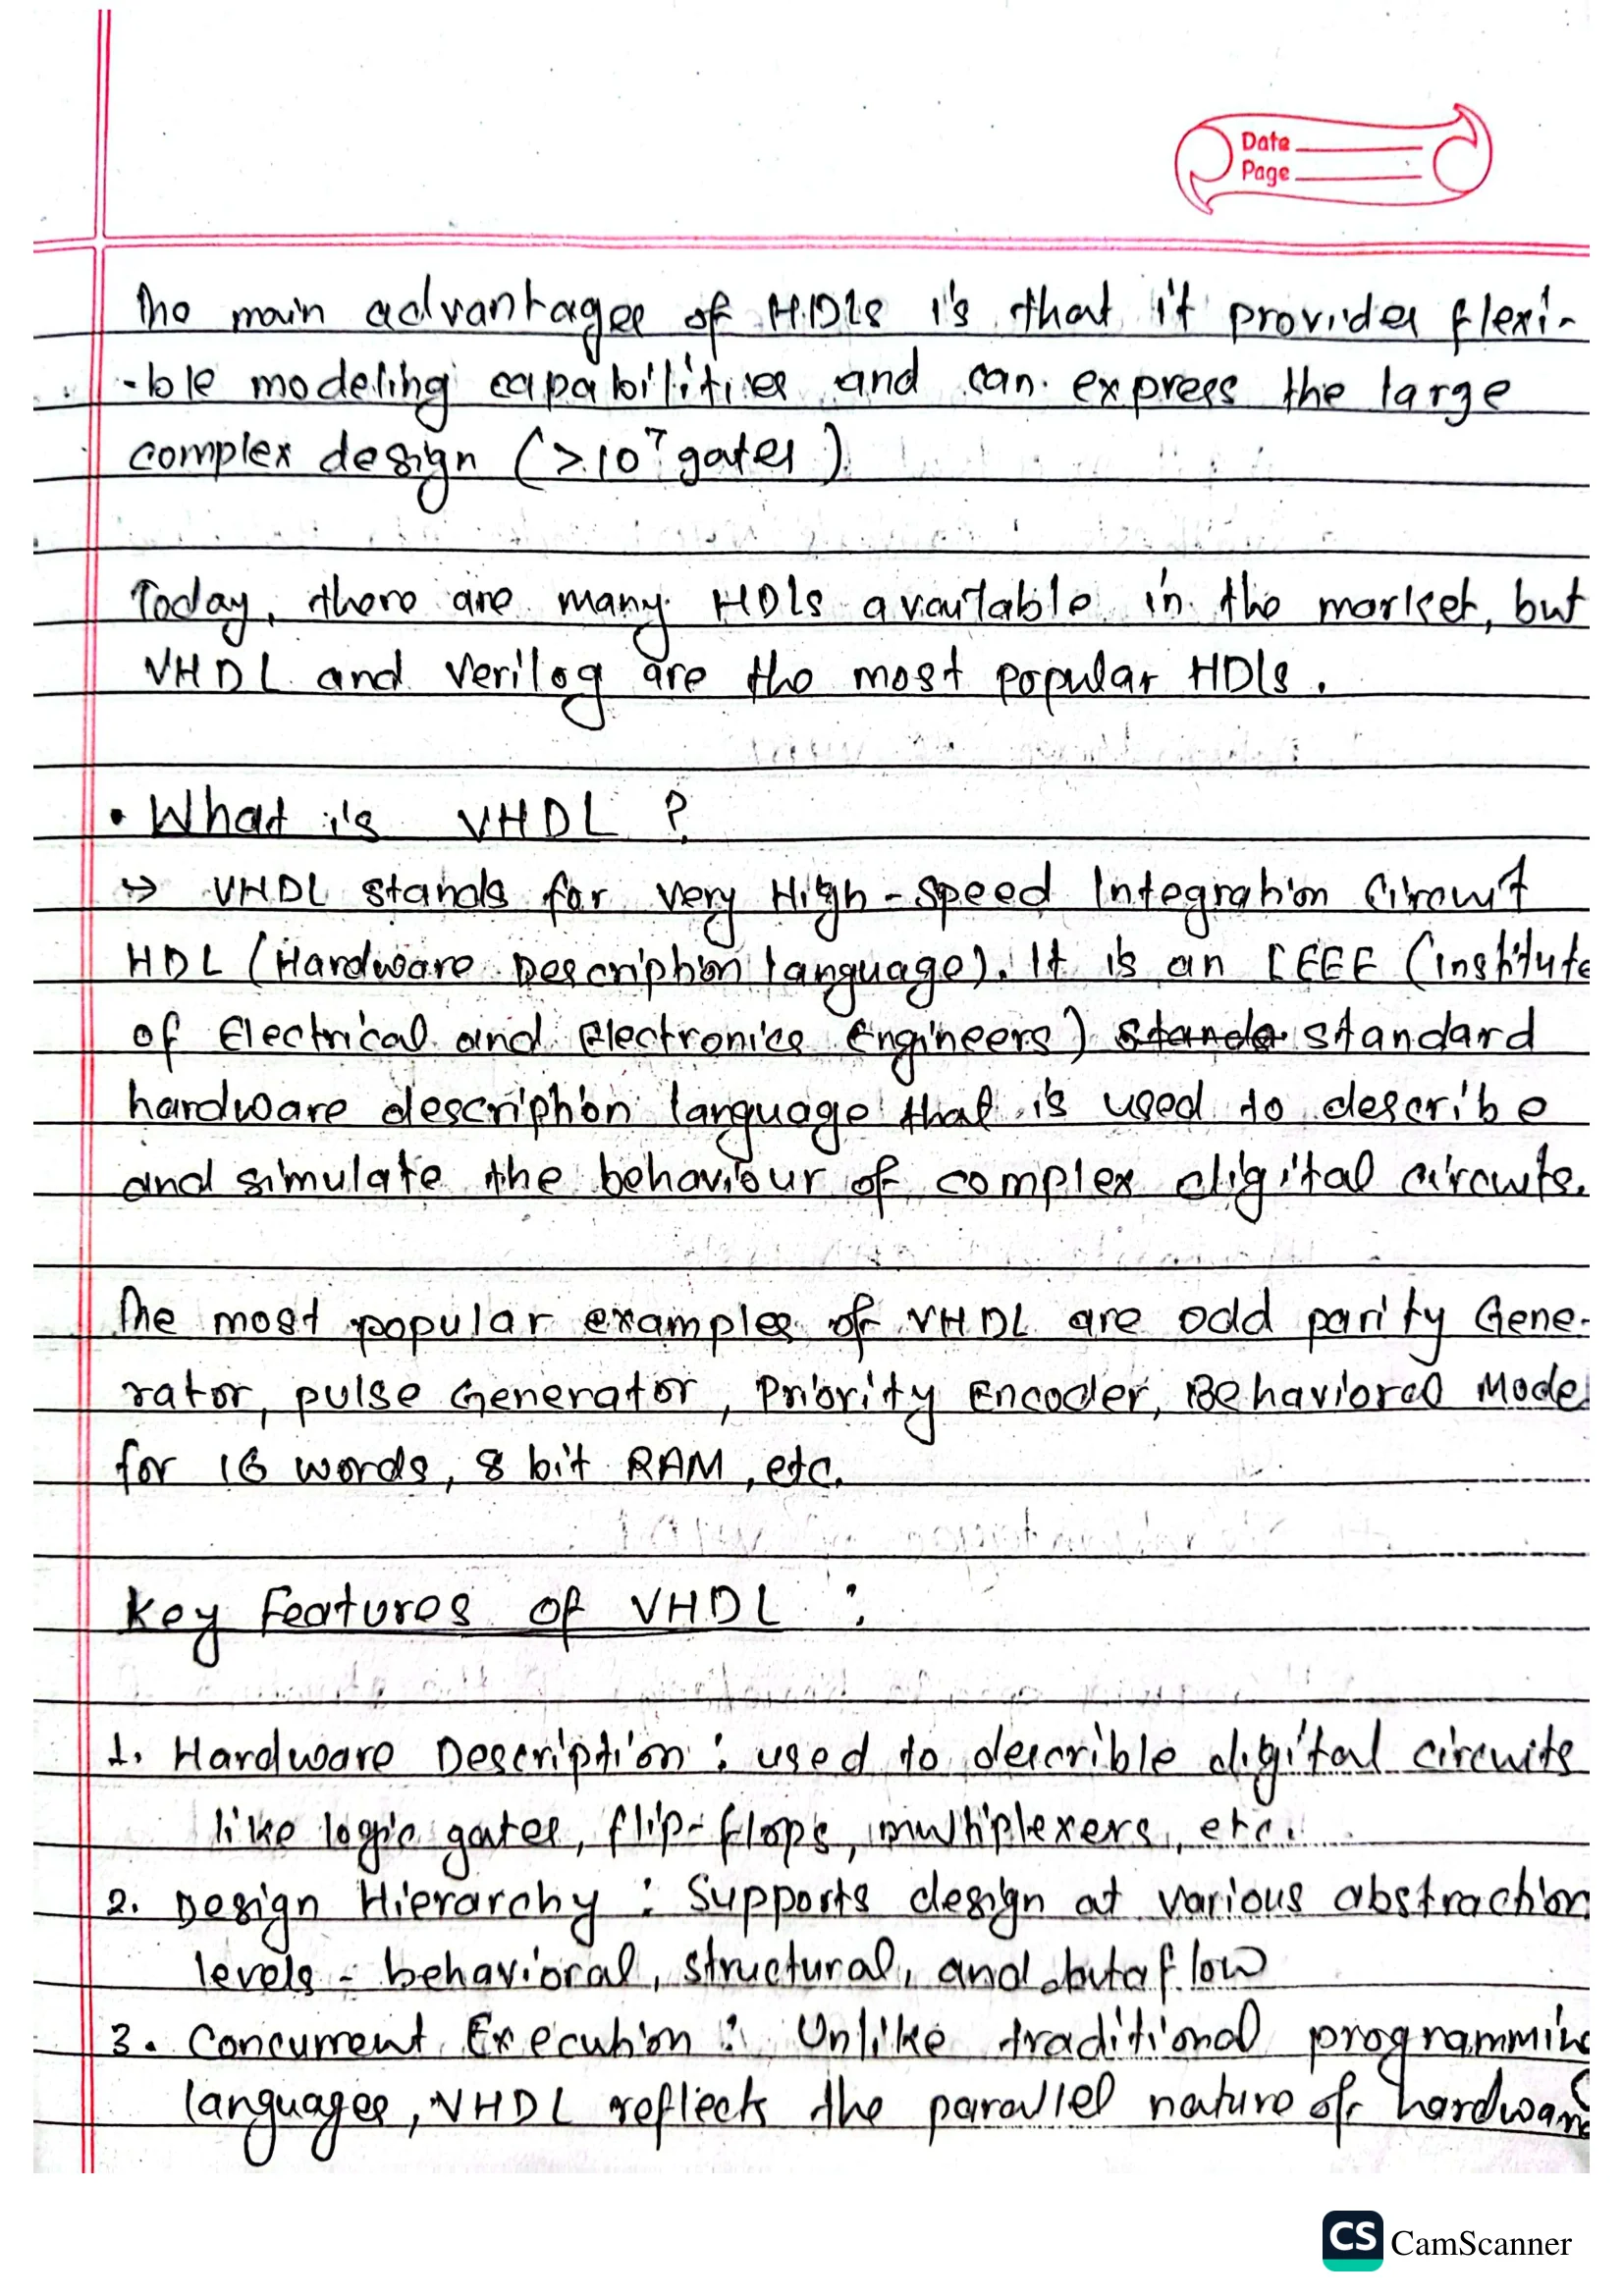 Date
Page
The main advantages of HDLs is that it provides flexi-
-ble modeling capabilities and can express the large
complex design (>10⁷ gates).
Today, there are many HDLs available in the market, but
VHDL and Verilog are the most popular HDLs.
• What is VHDL ?
→ VHDL stands for Very High-Speed Integration Circuit
HDL (Hardware Description language). It is an IEEE (institute
of Electrical and Electronics Engineers) stande standard
hardware description language that is used to describe
and simulate the behaviour of complex digital circuits.
The most popular examples of VHDL are odd parity Gene-
rator, pulse Generator, Priority Encoder, Behavioral Mode
for 16 words, 8 bit RAM, etc.
Key Features of VHDL :
1. Hardware Description : used to describle digital circuits
like logic gates, flip-flops, multiplexers, etc.
2. Design Hierarchy : Supports design at various abstraction
levels - behavioral, structural, and dataflow
3. Concurrent Execution : Unlike traditional programming
languages, VHDL reflects the parallel nature of hardware
CS CamScanner